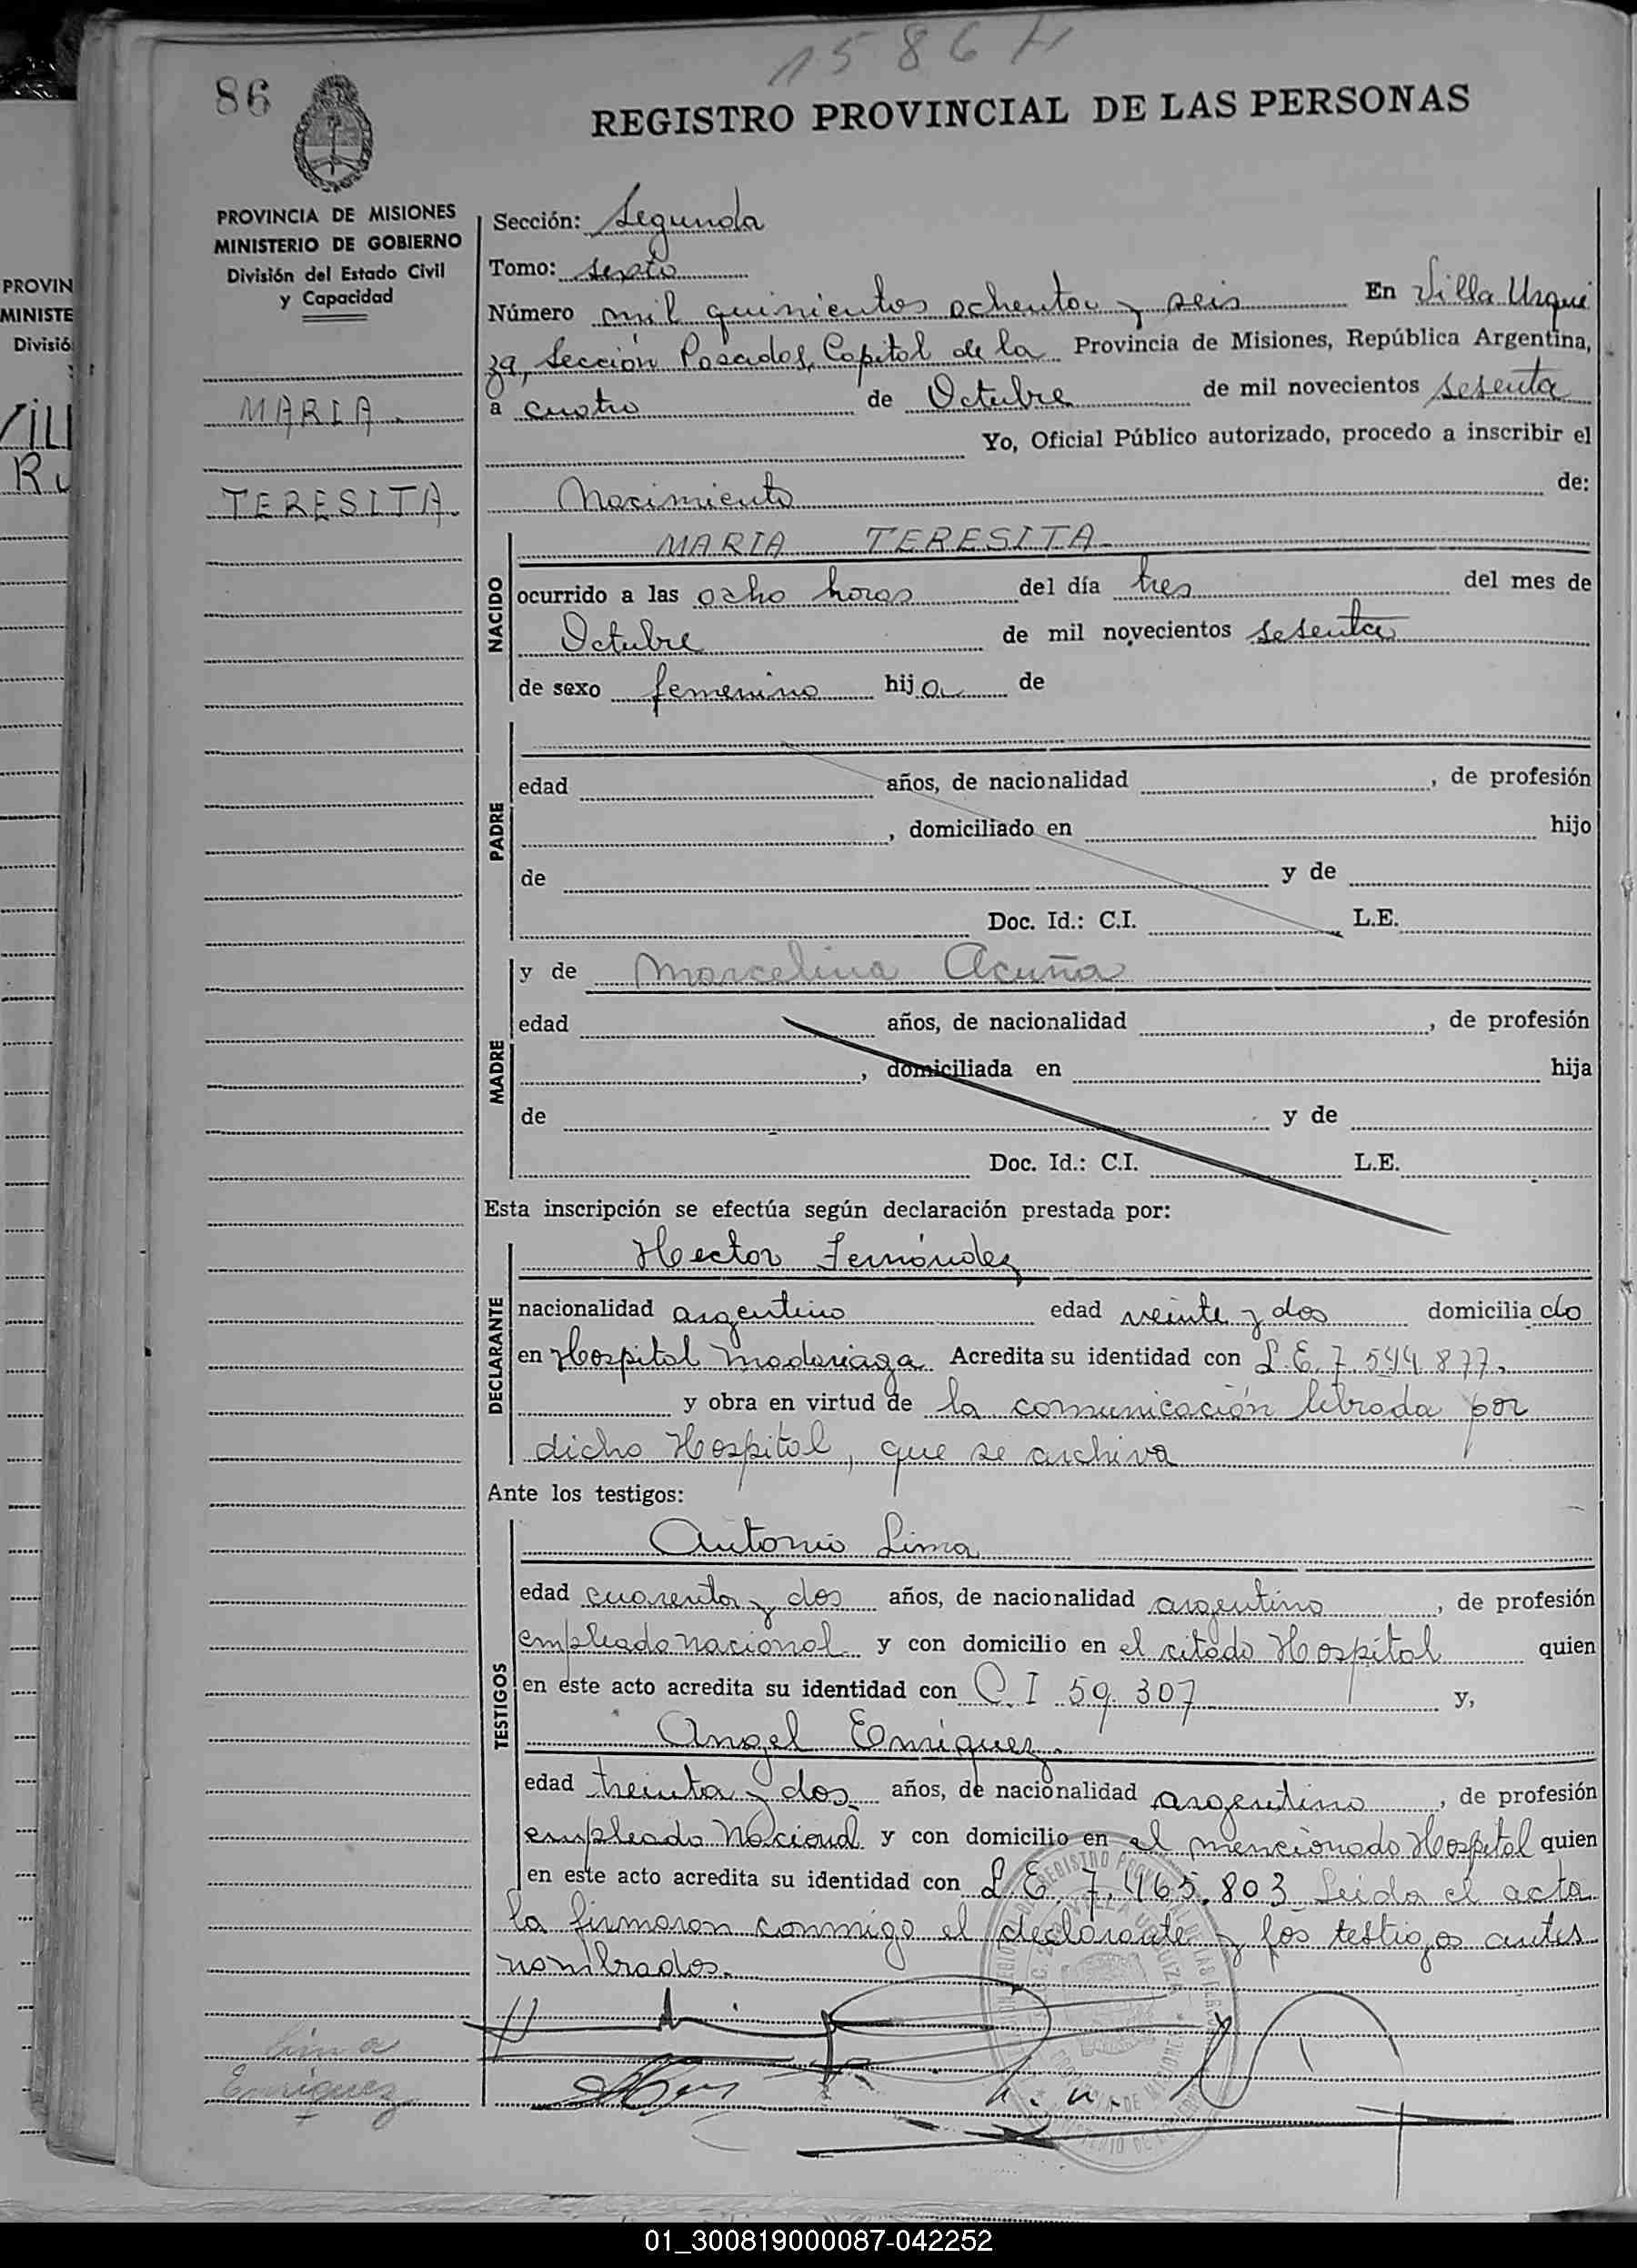 1586
86
REGISTRO PROVINCIAL DE LAS PERSONAS
PROVINCIA DE MISIONES
MINISTERIO DE GOBIERNO
División del Estado Civil
y Capacidad
MARIA
TERESITA
Sección: Segunda
Tomo: sexto
Número mil quinientos ochenta y seis En Villa Urqui
za, Sección Posadas, Capital de la Provincia de Misiones, República Argentina,
a cuatro de Octubre de mil novecientos sesenta
Yo, Oficial Público autorizado, procedo a inscribir el
Nacimiento de:
NACIDO
MARIA TERESITA
ocurrido a las ocho horas del día tres del mes de
Octubre de mil novecientos sesenta
de sexo femenino hija de
PADRE
edad años, de nacionalidad , de profesión
, domiciliado en hijo
de y de
Doc. Id.: C.I. L.E.
MADRE
y de Marcelina Acuña
edad años, de nacionalidad , de profesión
, domiciliada en hija
de y de
Doc. Id.: C.I. L.E.
Esta inscripción se efectúa según declaración prestada por:
DECLARANTE
Hector Fernández
nacionalidad argentino edad veinte y dos domiciliado
en Hospital Madariaga Acredita su identidad con L.E. 7.544.877,
y obra en virtud de la comunicación librada por
dicho Hospital, que se archiva
Ante los testigos:
TESTIGOS
Antonio Lima
edad cuarenta y dos años, de nacionalidad argentino, de profesión
empleado nacional y con domicilio en el citado Hospital quien
en este acto acredita su identidad con C.I 59.307 y,
Angel Enriquez.
edad treinta y dos años, de nacionalidad argentino, de profesión
empleado Nacional y con domicilio en el mencionado Hospital quien
en este acto acredita su identidad con L.E. 7.465.803 Leida el acta
la firmaron conmigo el declarante y los testigos antes
nombrados.
Lima
Enriquez
PROVIN
MINISTE
Divisió
VILL
01_300819000087-042252